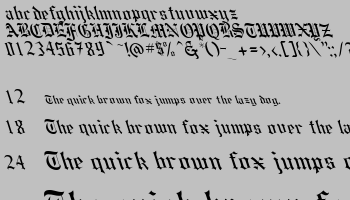 abcdefghijklmnopqrstuvwxyz
ABCDEFGHIJKLMNOPQRSTUVWXYZ
0123456789`~!@#$%^&*()-_+=>,<.[]{}\"":;/?
12 The quick brown fox jumps over the lazy dog.
18 The quick brown fox jumps over the la
24 The quick brown fox jumps o